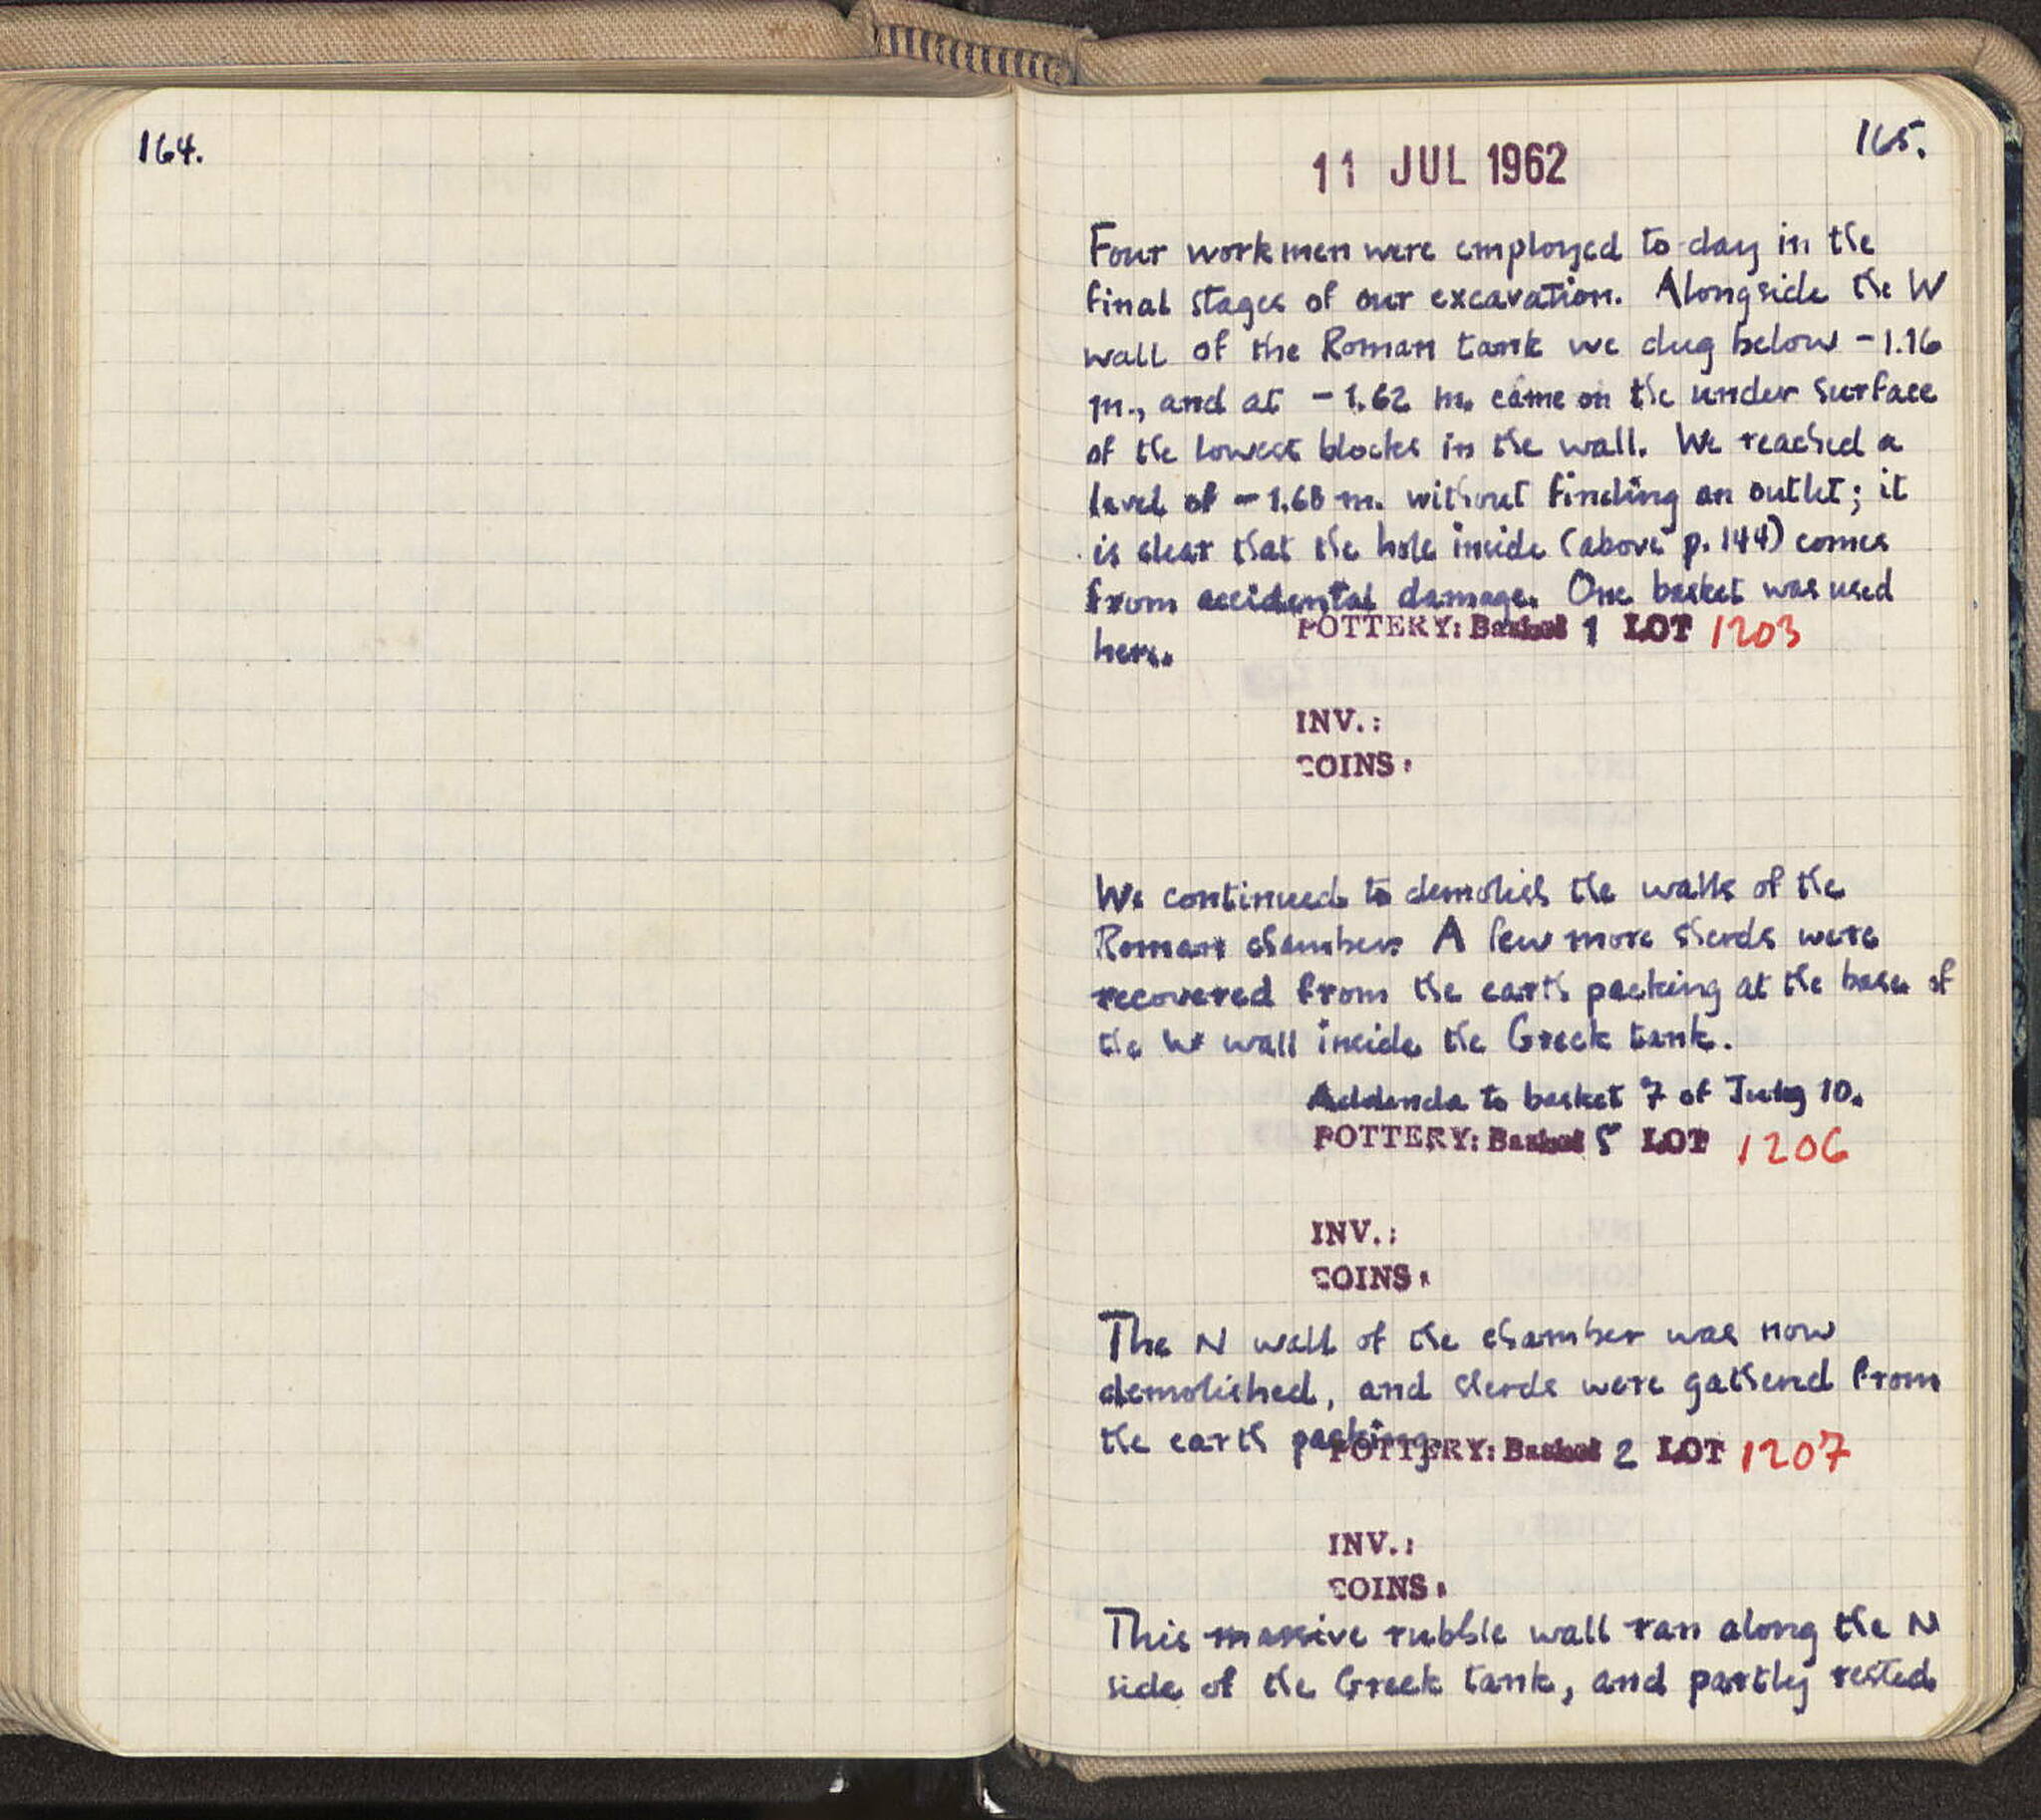 164.
165.
11 JUL 1962
Four workmen were employed to-day in the
final stages of our excavation. Alongside the W
wall of the Roman tank we dug below -1.16
m., and at -1.62 m. came on the under surface
of the lowest blocks in the wall. We reached a
level of -1.68 m. without finding an outlet; it
is clear that the hole inside (above p. 144) comes
from accidental damage. One basket was used
here.
POTTERY: Basket 1 LOT 1203
INV.:
COINS:
We continued to demolish the walls of the
Roman chamber. A few more sherds were
recovered from the earth packing at the base of
the W wall inside the Greek tank.
Addenda to basket 7 of July 10.
POTTERY: Basket 5 LOT 1206
INV.:
COINS:
The N wall of the chamber was now
demolished, and sherds were gathered from
the earth packing.
POTTERY: Basket 2 LOT 1207
INV.:
COINS:
This massive rubble wall ran along the N
side of the Greek tank, and partly rested